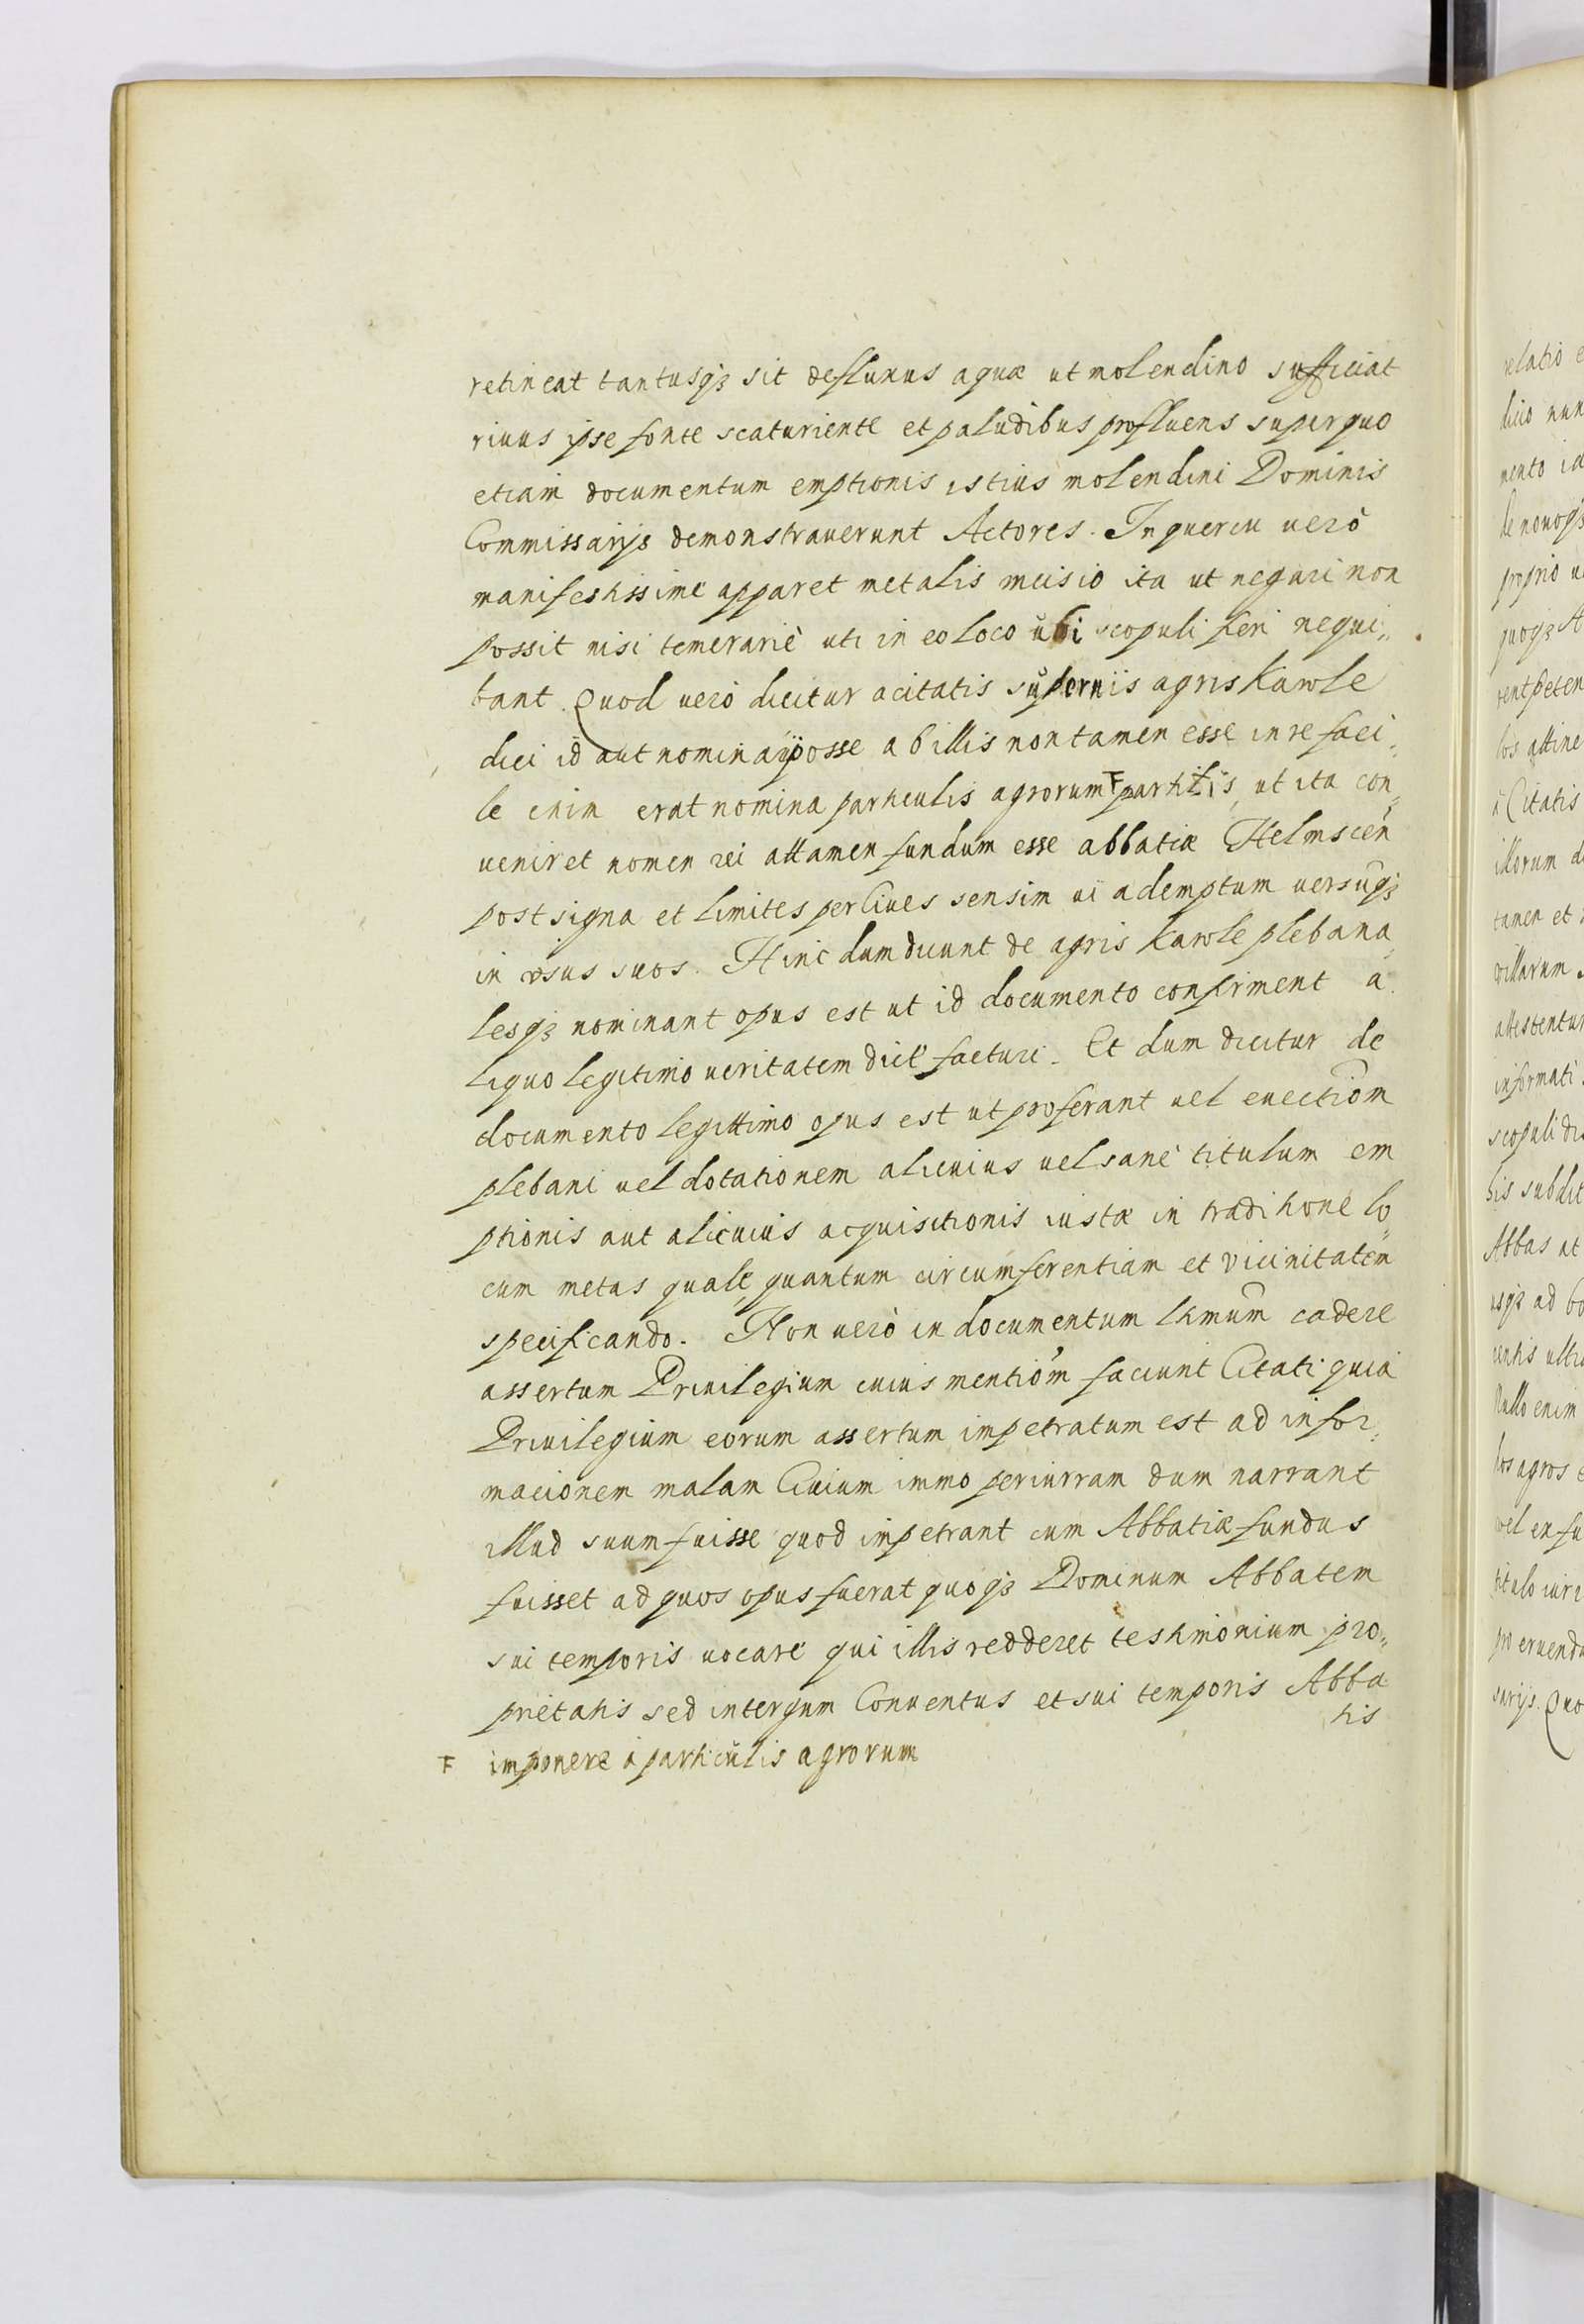 retineat tantusqꝫ sit defluxus aquæ ut molendino sufficiat
riuus ipse fonte scaturiente et paludibus profluens super quo
etiam documentum emptionis istius molendini Dominis
Commissarijs demonstrauerunt Actores. In quercu uerò
manifestissime apparet metalis incisio ita ut negari non
possit nisi temerariè uti in eo loco ubi scopuli fieri nequi„
bant. Quod uerò dicitur a citatis supernis agris Karole
dici id aut nominari posse ab illis non tamen esse in re faci„
le enim erat nomina particulis agrorum Ŧ partitis, ut ita con„
ueniret nomen rei attamen fundum esse abbatiæ Helmscen
post signa et limites per Ciues sensim ui ademptum uersuqꝫ
in vsus suos. Hinc dum dicunt de agris Karole plebana„
lesqꝫ nominant opus est ut id documento confirment a„
liquo legitimo ueritatem dicti facturi. Et dum dicitur de
documento legittimo opus est ut proferant uel euectiom
plebani uel dotationem alicuius uel sanè titulum em
ptionis aut alicuius acquisitionis iustæ in traditione lo„
cum metas quale, quantum circumferentiam et vicinitatem
specificando. Non uerò in documentum ltmum cadere
assertum Priuilegium cuius mentiom faciunt Citati quia
Priuilegium eorum assertum impetratum est ad infor„
macionem malam Ciuium immo periurram dum narrant
illud suum fuisse quod impetrant cum Abbatiæ fundus
fuisset ad quos opus fuerat quoqꝫ Dominum Abbatem
sui temporis uocare qui illis redderet testimonium pro„
prietatis sed intergum Conuentus et sui temporis Abba
tis
Ŧ imponere à particulis agrorum
relatio
dicio nun
mento
proprio
quoqꝫ A
los attine
à Citatis
illorum
tamen et
villarum
attestentur
informati
scopuli
bis subdit
Abbas at
usqꝫ ad
Nullo enim
hos agros
titulo iure
pro eruendo
sarijs. Quo